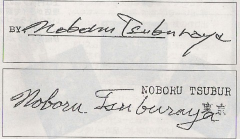 BY Noboru Tsuburaya
NOBORU TSUBUR
Noboru Tsuburaya